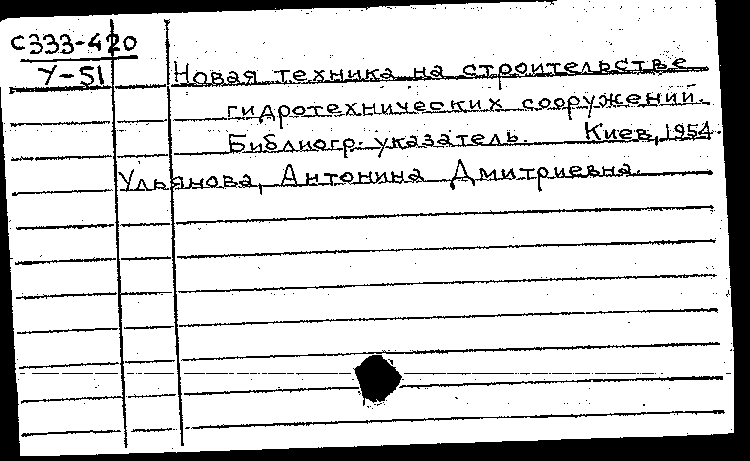 С333-420
У-51
Новая техника на строительстве
гидротехнических сооружений.
Библиогр. указатель. Киев, 1954.
Ульянова, Антонина Дмитриевна.